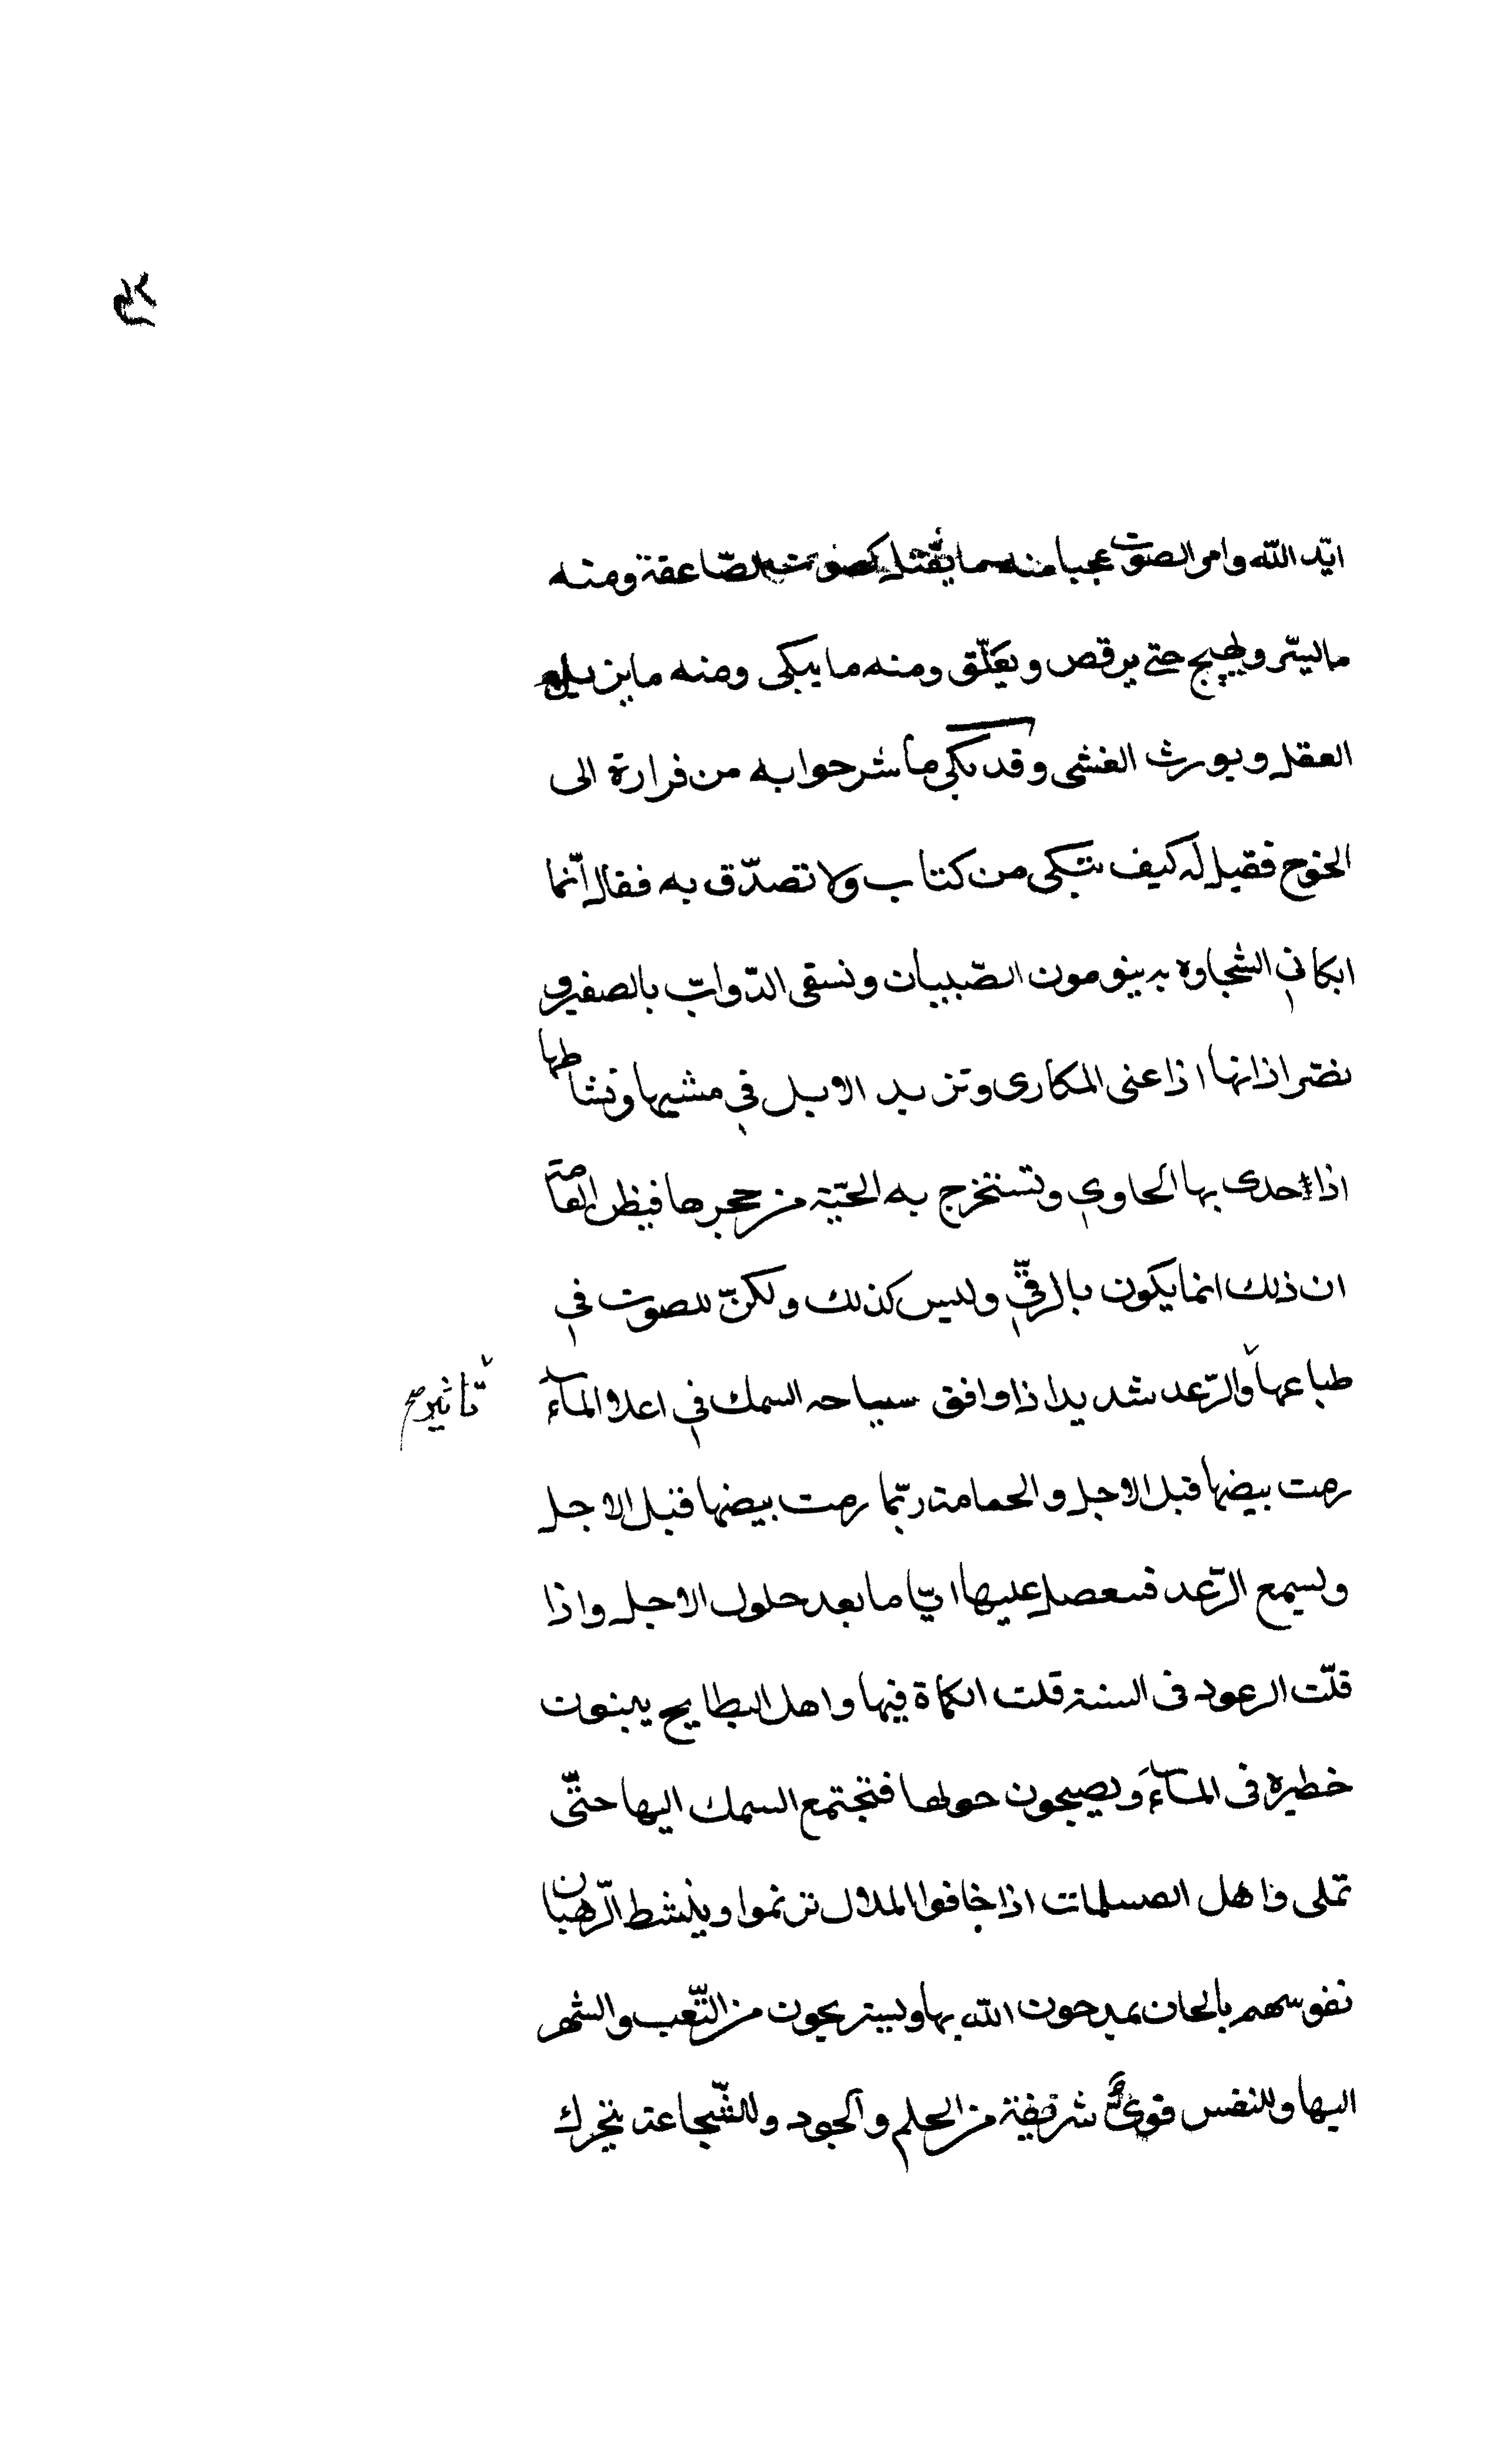 ايّد الله وامر الصوت عجبا منه ما يقتل كصوت الصّاعقة ومنه
ما ليسّر ويهيج حتے يرقص ويقلّق ومنه ما يبكى ومنه ما يزيل
العقل ويورث الغشى وقد بكى ما شرحوا به من فرارة الى
الخوح فقيل له كيف تبكى من كتاب ولا تصدّق به فقال انّما
ابكانى الشجا وه به ينومون الصّبيان ونسقى الدّوابّ بالصفير و
نصّر اذانها اذا عنى المكارى وتزيد الابل في مشيها ونشاطها
اذا حدى بها الحاوي وتستخرج به الحيّة من حجرها فيظن العامة
ان ذلك انما يكون بالرقي وليس كذلك ولكنّ للصوت في
طباعها والرّعد شديدا ذا وافق سباحه السمك في اعلا المآء
تاثير صح
رمت بيضها قبل الاجل والحمامة ربّما رمت بيضها قبل الاجل
وليسمع الرّعد فسعصل عليها ايّاما بعد حلول الاجل واذا
قلّت الرعود فى السنة قلت الكماة فيها واهل البطايح يبنون
خطيره فى المآء ويصيحون حولها فتجتمع السمك اليها حتّى
تملى واهل الصلمات اذا خافوا الملال ترنموا وينشط الرّهبان
نفوسهم بالحان يمدحون الله بها وليستريحون من التّعب والشهر
اليها وللنفس قوىً شريفة من الحلم والجود وللشّجاعة تتحرك